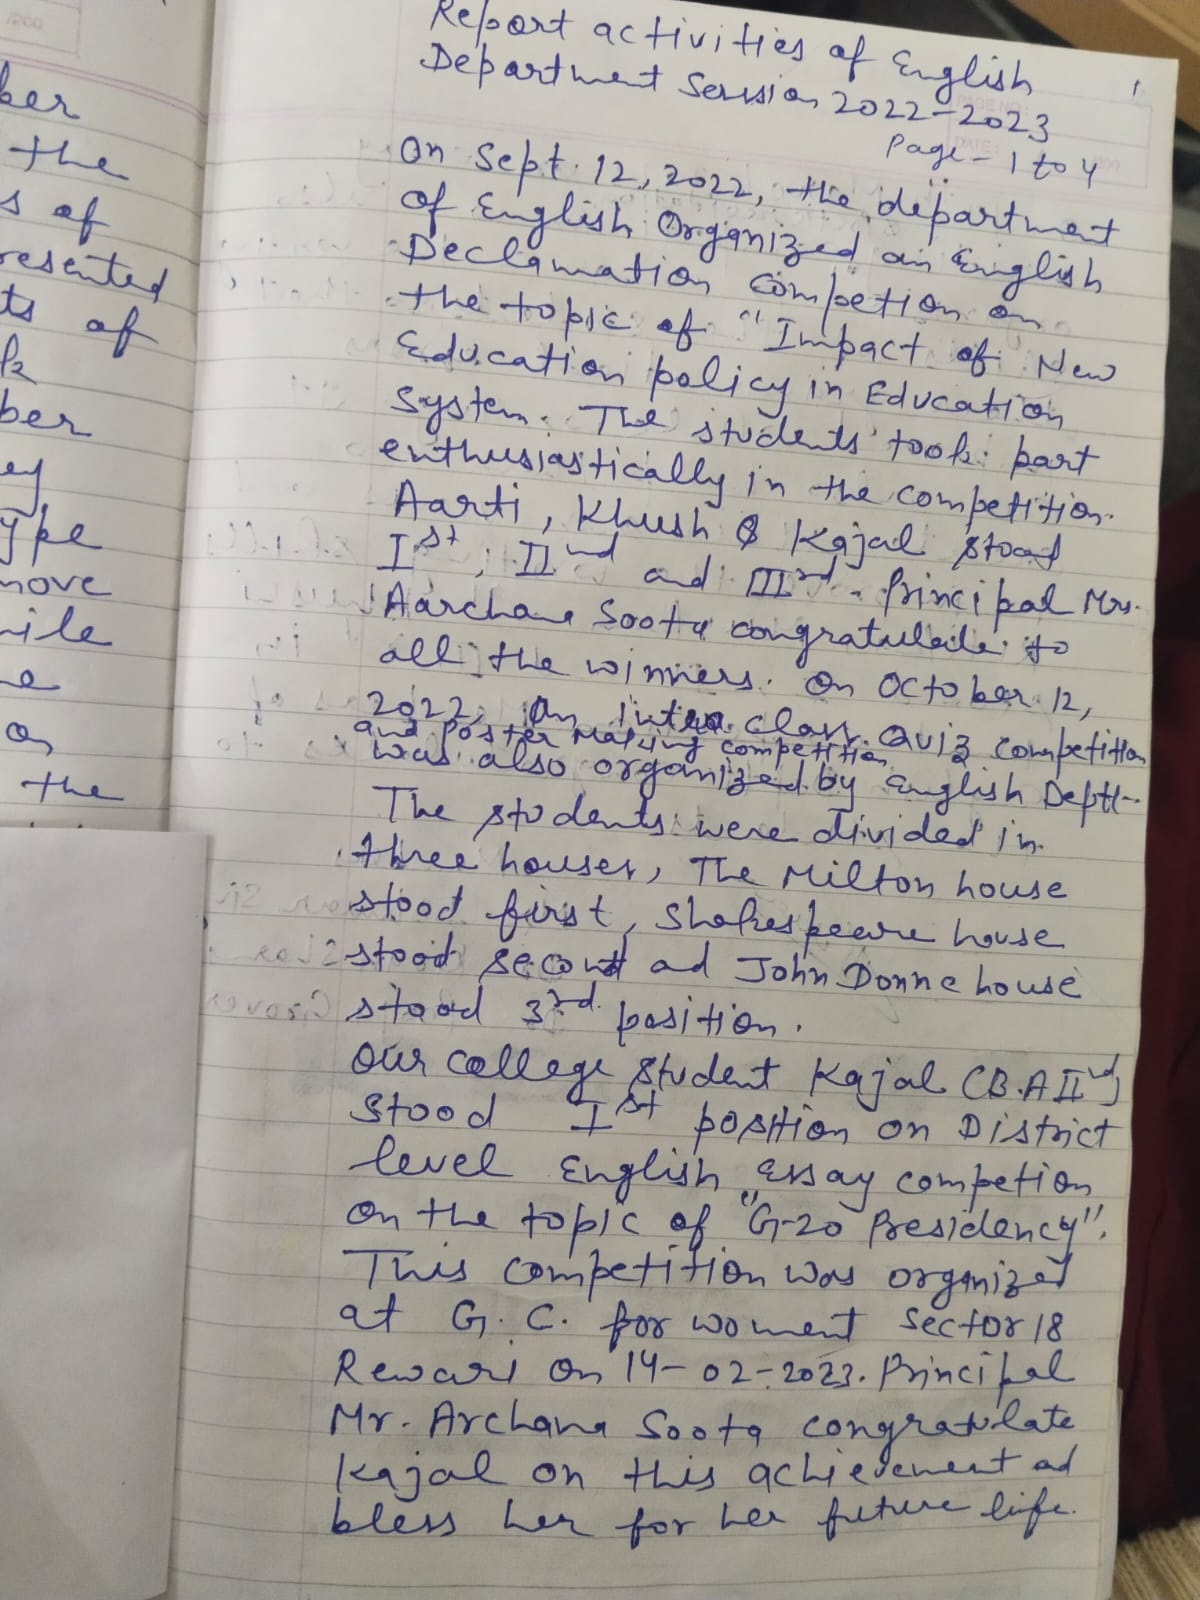 /200
ber
the
s of
resented
ts of
k
ber
ey
ype
move
nile
e
on
the
Report activities of English
Department Serssion 2022-2023
1
PAGE NO.:
DATE:
Page - 1 to 4
On Sept. 12, 2022, the department
of English Organized an English
Declamation Competion on
the topic of "Impact of New
Education policy in Education
System. The students took part
enthusiastically in the competition.
Aarti, Khush & Kajal stood
Ist, IInd and IIIrd. Principal Mrs.
Aarchana Soota congratulate to
all the winners. On October 12,
2022, An Inter class Quiz competition
and Poster Making competition
was also organized by English Deptt-
The students were divided in
three houses, The Milton house
stood first, Shakespeare house
stood second ad John Donne house
stood 3rd position.
Our college student Kajal (B.A IInd)
stood Ist position on District
level English Essay competion
on the topic of "G-20 Presidency".
This competition was organized
at G. C. for woment Sector 18
Rewari on 14-02-2023. Principal
Mr. Archana Soota congratulate
Kajal on this achievement ad
bless her for her future life.